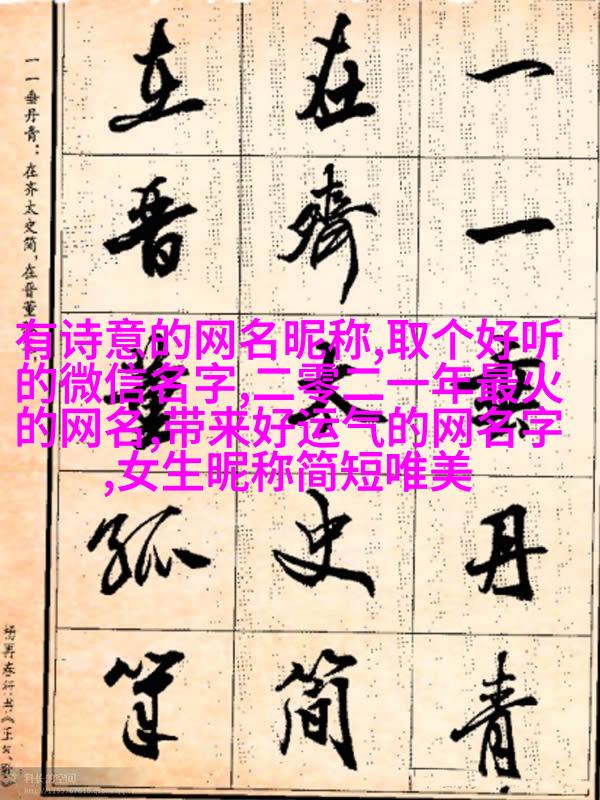 有诗意的网名昵称,取个好听
的微信名字,二零二一年最火
的网名,带来好运气的网名字
,女生昵称简短唯美
一一垂丹青
在齊太史简
在晋董狐筆
一一垂丹青：在齐太史简,在晋董
杨再春行书《正气歌
科长的空间